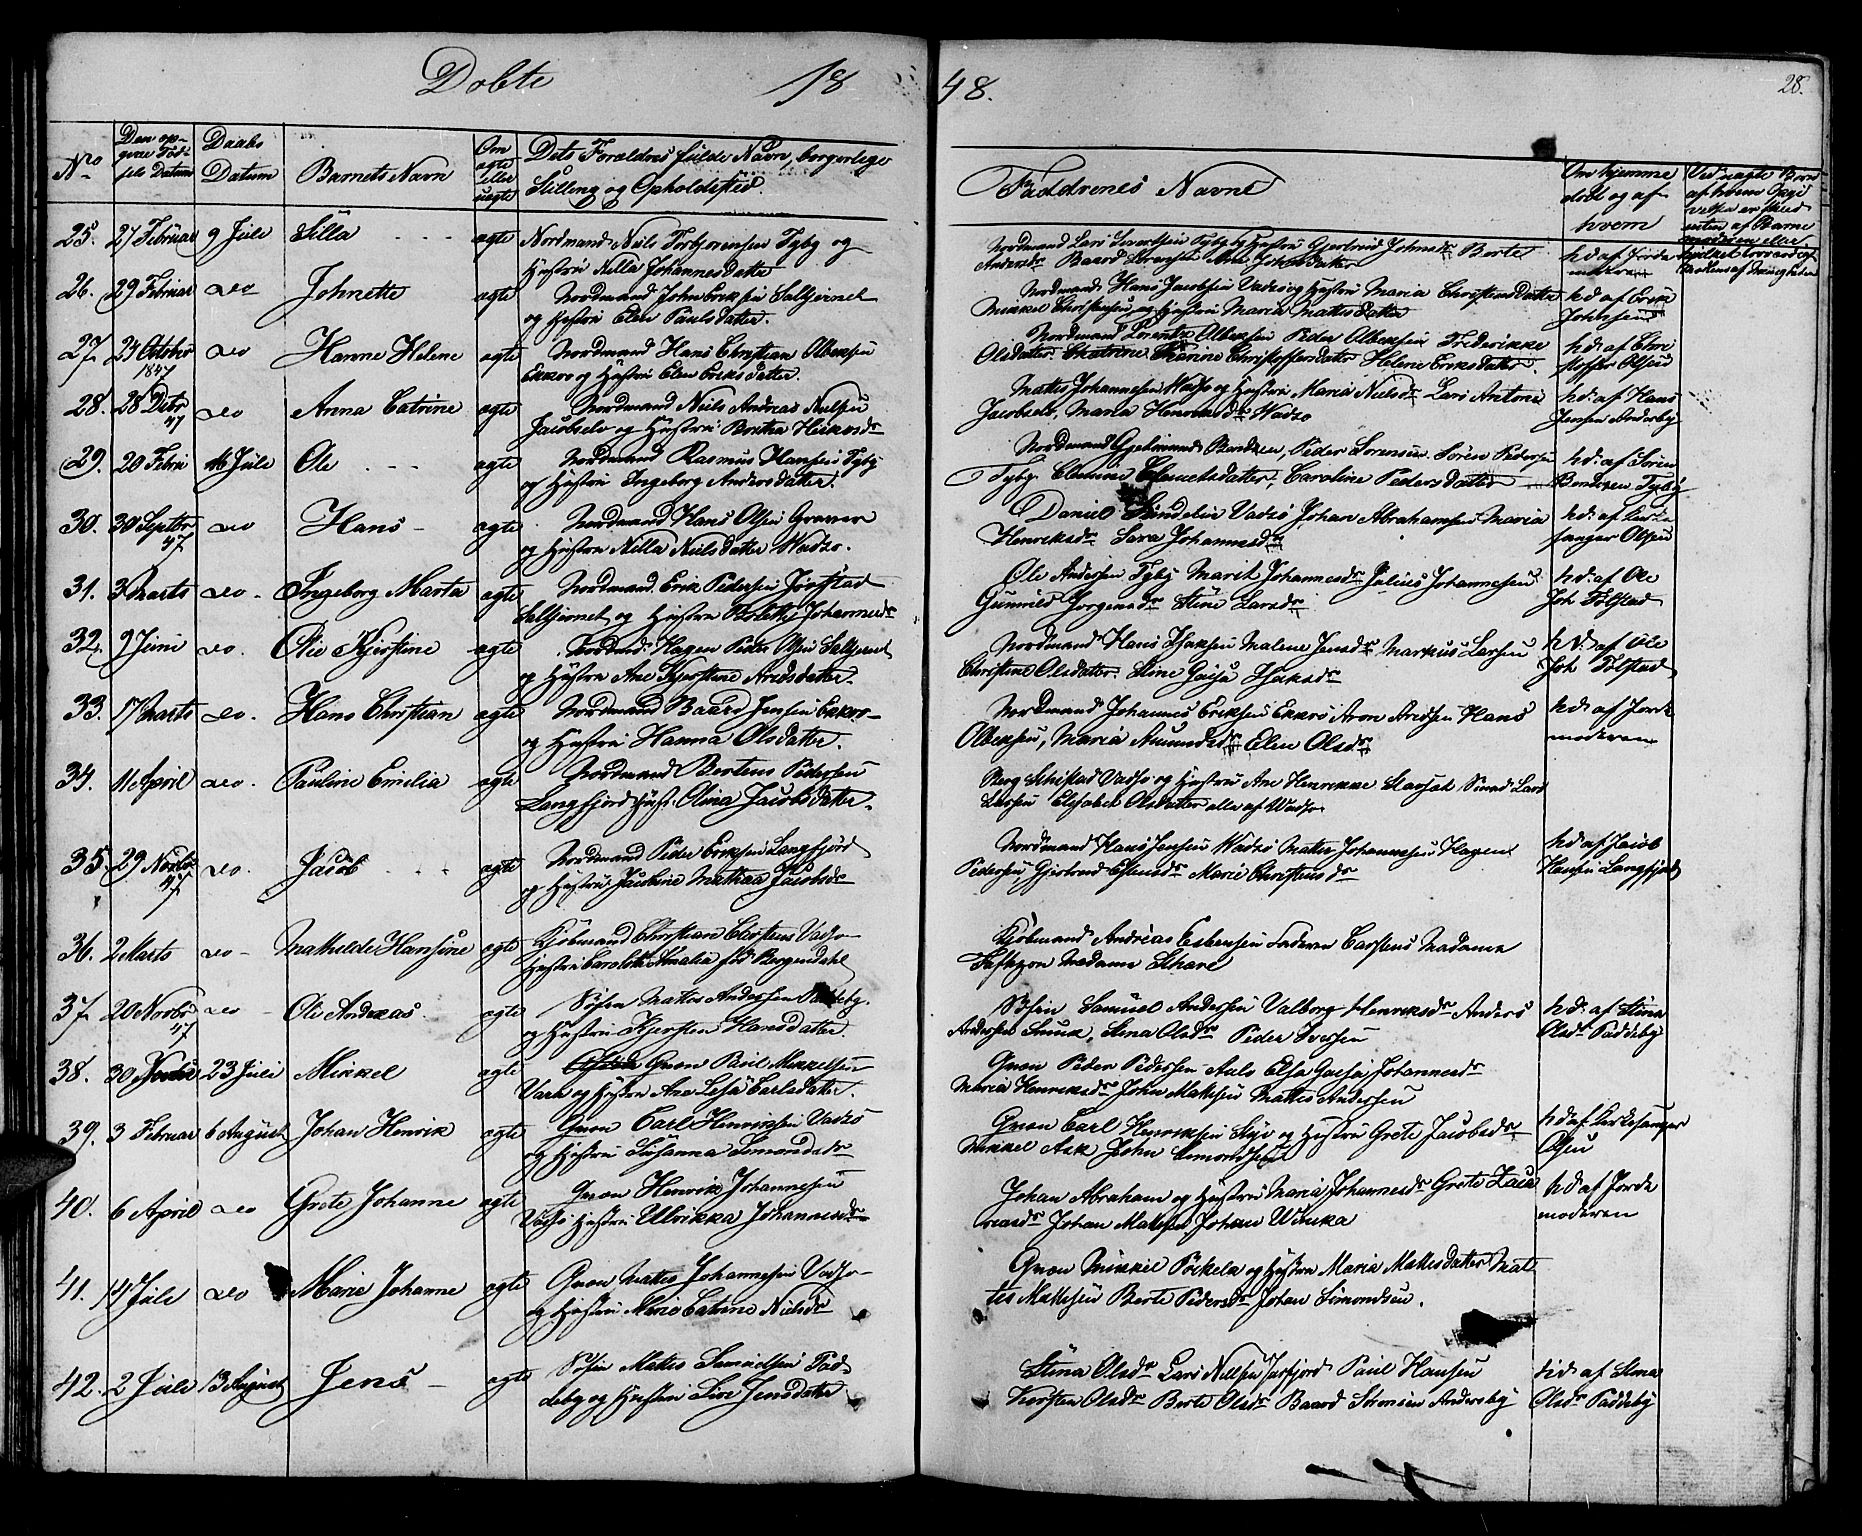 Døbte 18
48.
28.
No
Den opgivne Fødsels Datum
Daabs Datum
Barnets Navn
Om ægte eller uægte
Dets Forældres fulde Navn, borgerlige Stilling og Opholdsted.
Faddrenes Navne
Om hjemme døbt og af hvem
25. 27 Februar 9 Juli Silla ægte Nordmand Niels Torbjørensen Tyby og
Hustrue Nilla Johannesdatter
26. 29 Februar do Johnette ægte Nordmand John Eriksen Saltjernet
og Hustru Elen Paulsdatter.
Nordmand Hans Jacobsen Vadsø og Hustru Maria Christensdatter
Mikkel Christensen og Hustru Maria Mattisdatter
hd af Erik
Johnsen
27. 24 Octobr 1847 do Hanne Helene ægte Nordmand Hans Christian Olbersen
Ekkerø og Hustru Elen Eriksdatter.
Nordmand Lorentz Olbersen Peder Olbersen Frederikke
Olsdater. Chatrine Karine Christoffersdater Helene Eriksdatter.
hd. af Chri
stoffer Olsen
28. 28 Decbr 47 do Anna Catrine ægte Nordmand Niels Andreas Nielsen
Jacobselv og Hustru
Mattis Johannesen Wadsø og Hustru Maria Nielsdr Lars Antoni
Jacobselv, Maria Henriksdr Wadsø
hd. af Hans
Jensen Andersby
29. 20 Febru 16 Jule Ole ægte Nordmand Rasmus Hansen Tyby
og Hustru Ingeborg Andersdatter.
Peder Sørensen. Søren Pedersen
Tyby Clemetsdatter, Caroline Pedersdatter
hd. af Søren
Bendixen Tyby
30. 30 Septbr 47 do Hans ægte Nordmand Hans Olsen Graner
og Hustru Nilla Nielsdatter Wadsø.
Daniel Sundelin Vadsø Johan Abrahamsen Maria
Henriksdr Sara Johannesdr
hd. af Kirke
sanger Olsen
31. 3 Marts do Ingeborg Marta ægte Nordmand Erik Pedersen Jørstad
Saltjernet og Hustru Johannesdr
Ole Andersen Tyby Marit Johannesdr Julius Johannesen
Gunnild Jørgensdr Stine Larsdr
hd. af Ole
Joh Tolstad
32. 9 Juni do. Olie Kjerstine ægte Nordmd. Hagen Peder Olsen Saltjernet
og Hustru Ane Kjerstine Aridsdatter.
Nordmand Hans Isaksen Malene Jensdr Markus Larsen
Christine Olsdater. Stine Gaisa Isaksdr
hd. af Ole
Joh Tolstad
33. 17 Marts do. Hans Christian ægte Nordmand Baard Jensen Ekkerø
og Hustru Hanna Olsdatter.
Nordmand Johannes Eriksen Ekkerø Aron Aridsen Hans
Olbersen, Maria Amundsdr Elen Olsdr
hd. af Jorde
moderen
34. 11 April do. Pauline Emelia ægte Nordmand Bertens Pedersen
Langfjord Hust. Olina Jacobsdatter.
og Hustru Ane Henrikke Lars
Larsen Elisabet Olsdater alle af Wadsø
35. 29 Novbr 47 do. Jacob ægte Nordmand Peder Eriksen Langfjord
og Hustru Jacobsdr
Nordmand Hans Jensen Wadsø Mattis Johannesen Hagen
Pedersen Gjertrud Marie Christensdr
hd af Jacob
Hansen Langfjord
36. 2 Marts do Mathilde Hansine ægte Kjøbmand Christian Clerstens Vadsø
Hustru Amalia fød Bergendahl
Kjøbmand Andreas Esbensen Faderen Carstens Madame
Madame Schanc
37. 20 Novbr 47 do Ole Andreas. ægte Søfin Mattis Andersen Paddeby.
og Hustru Kjersten Hansdatter.
Søfin Samuel Andersen Valborg Henriksdr Anders
Andersen Stina Olsdr Peder Iversen
hd. af Stina
Olsdr Paddeby
38. 23 Juli Mikkel ægte Qvæn Paul Mikkelsen
og Hustru Ane Lesa Carlsdater.
Qvæn Peder Pedersen Elsa Gaesa Johannesdr
Maria Henriksdr John Mattisen Mattis Andersen
39. 3 Februar 6 August Johan Henrik ægte Qvæn Carl Henriksen Vadsø
og Hustru Susanna Simonsdr
Qvæn Carl Henriksen og Hustru Grete Jacobsdr
Mikkel Ask John Simonsen
hd af Kirkesanger
Olsen
40. 6 April do Grete Johanne ægte Qvæn Henrik Johannesen
Vadsø Hustru Ulrikka Johannesdr
Johan Abraham og Hustru Maria Johannesdr Grete Lau
resdr Johan Mattisen Johan
hd af Jorde
moderen
41. 14 Juli do Marie Johanne ægte Qvæn Mattis Johannesen Vadsø
og Hustru Marie Catrine Nielsdr
Qvæn Mikkel og Hustru Maria Mattisdatter Mat
tis Mattisen Berte Pedersdr Johan Simonsen.
42. 2 Juli 13 August Jens ægte Søfin Mattis Samuelsen Pad
deby og Hustru Live Jensdatter
Stina Olsdr Lars Nilsen Jarfjord Paul Hansen
Kirsten Olsdr Berte Olsdr Baard Simonsen Andersby
hd af Stina
Olsdr Paddeby